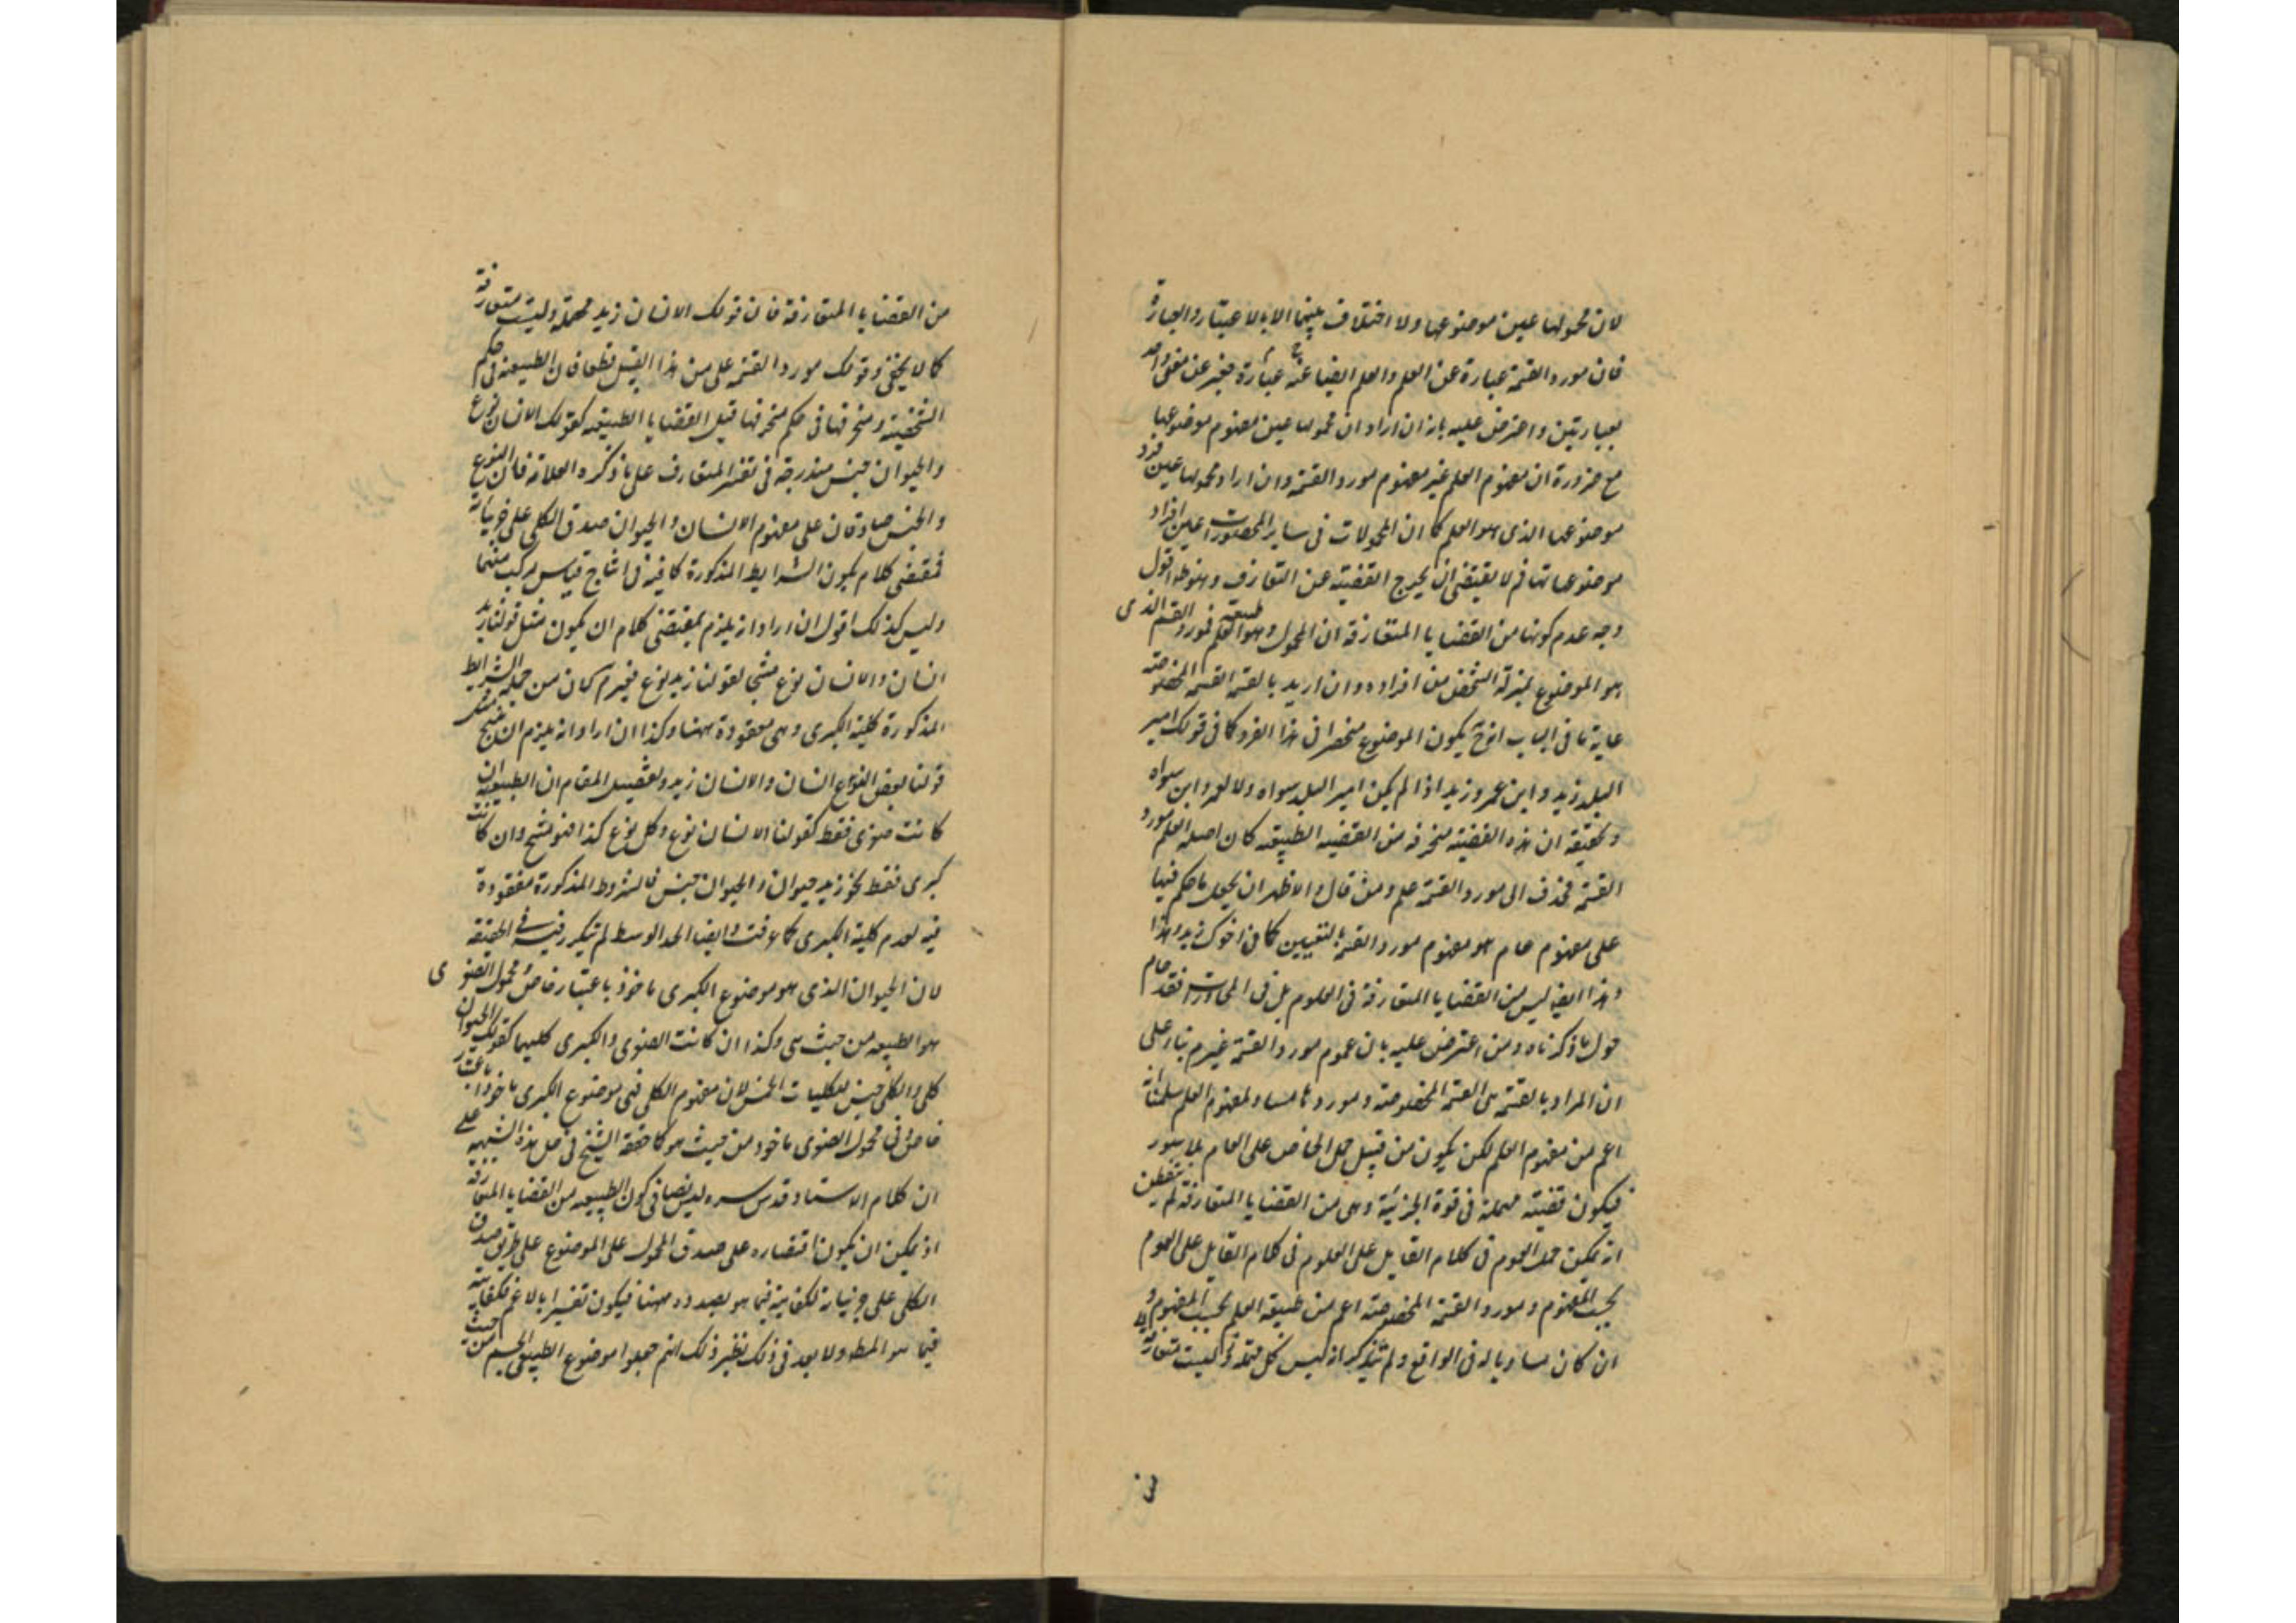 لان محمولها عين موضوعها ولا اختلاف بينهما الا بالاعتبار والعبارة
فان مورد القسمة عبارة عن العلم والعلم ايضا عبارة عنه فيعبر عن معنى واحد
بعبارتين واعترض عليه بانه ان اراد ان محمولها عين مفهوم موضوعها
مع ضرورة ان مفهوم العلم غير مفهوم مورد القسمة وان اراد محمولها عين فرد
موضوعها الذى هو العلم كما ان المحمولات فى ساير المحصورات عين افراد
موضوعاتها فم لا يقتضى ان يخرج القضية عن التعارف وهو ظ اقول
وجه عدم كونها من القضايا المتعارفة ان المحمول وهو طبيعة العلم فمورد القسم الذى
هو الموضوع بمنزلة الشخص من افراده وان اريد بالقسمة القسمة المخصوصة
غاية ما فى الباب انه ح يكون الموضوع منحصرا فى هذا الفرد كما فى قولك امير
البلد زيد وابن عمرو زيد اذا لم يكن امير البلد سواه ولا لعمرو ابن سواه
وتحقيقه ان هذه القضية منحرفة من القضية الطبيعية كان اصله العلم مورد
القسمة فحذف الى مورد القسمة علم ومن قال والاظهر ان يحمل ما حكم فيها
على مفهوم عام هو مفهوم مورد القسمة بالتعيين كما فى اخوك زيد وهذا
وهذا ايضا ليس من القضايا المتعارفة فى العلوم بل فى المحاورات فقد حام
حول ما ذكرناه ومن اعترض عليه بان عموم مورد القسمة غير م بناء على
ان المراد بالقسمة هى القسمة المخصوصة وموردها مساو لمفهوم العلم سلمنا انه
اعم من مفهوم العلم لكن يكون من قبيل حمل الخاص على العام بلا سور
فيكون قضية مهملة فى قوة الجزئية وهى من القضايا المتعارفة لم يتفطن
انه يمكن حمل العموم فى كلام القايل على العموم فى كلام القايل على العموم
بحسب المفهوم ومورد القسمة المخصوصة اعم من طبيعة العلم بحسب المفهوم و
ان كان مساويا له فى الواقع ولم يتذكر انه ليس كل مهملة فى ليست متعارفة
من القضايا المتعارفة فان قولك الانسان زيد مهملة وليست متعارفة
كما لا يخفى وقولك مورد القسمة علم من هذا القبيل قطعا فان الطبيعة فى حكم
الشخصية ومنحرفها فى حكم منحرفها قيل القضايا الطبيعية كقولك الانسان نوع
والحيوان جنس مندرجة فى تفسير المتعارف على ما ذكره العلامة فان النوع
والجنس صادقان على مفهوم الانسان والحيوان صدق الكلى على جزئياته
فمقتضى كلام يكون الشرايط المذكورة كافية فى انتاج قياس مركب منهما
وليس كذلك اقول ان اراد انه يلزم بمقتضى كلام ان يكون مثل قولنا زيد
انسان والانسان نوع منتجا لقولنا زيد نوع فغير م كان من جملة الشرايط
المذكورة كلية الكبرى وهى مفقودة ههنا وكذا ان اراد انه يلزم ان ينتج مثل
قولنا بعض النوع انسان والانسان زيد وتفصيل المقام ان الطبيعية ان
كانت صغرى فقط كقولنا الانسان نوع وكل نوع كذا فهو منتج وان كانت
كبرى فقط نحو زيد حيوان والحيوان جنس فالشروط المذكورة مفقودة
فيه لعدم كلية الكبرى كما عرفت وايضا الحد الاوسط لم يتكرر فيه فى الحقيقة
لان الحيوان الذى هو موضوع الكبرى ماخوذ باعتبار خاص ومحمول الصغرى
هو الطبيعة من حيث هى وكذا ان كانت الصغرى والكبرى كليهما كقولك الحيوان
كلى والكلى جنس للكليات الخمس لان مفهوم الكلى فى موضوع الكبرى ماخوذ باعتبار
خاص وفى محمول الصغرى ماخوذ من حيث هو كما حققه الشيخ فى حل هذه الشبهة على
ان كلام الاستاد قدس سره ليس نصا فى كون الطبيعية من القضايا المتعارفة
اذ يمكن ان يكون اقتصاره على صدق المحمول على الموضوع على طريق صدق
الكلى على جزئياته لكفايته فيما هو بصدده ههنا فيكون تفسيرا بالاعم لكفايته
فيما هو المط ولا بعد فى ذلك نظير ذلك انهم جعلوا موضوع الطبيعى الجسم من حيث